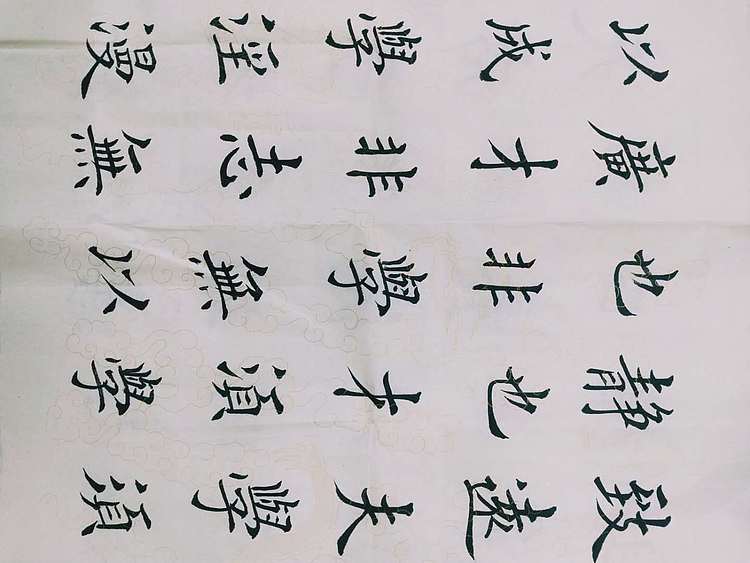 致遠夫學湏
静也才湏學
也非學無以
廣才非志無
以成學淫漫